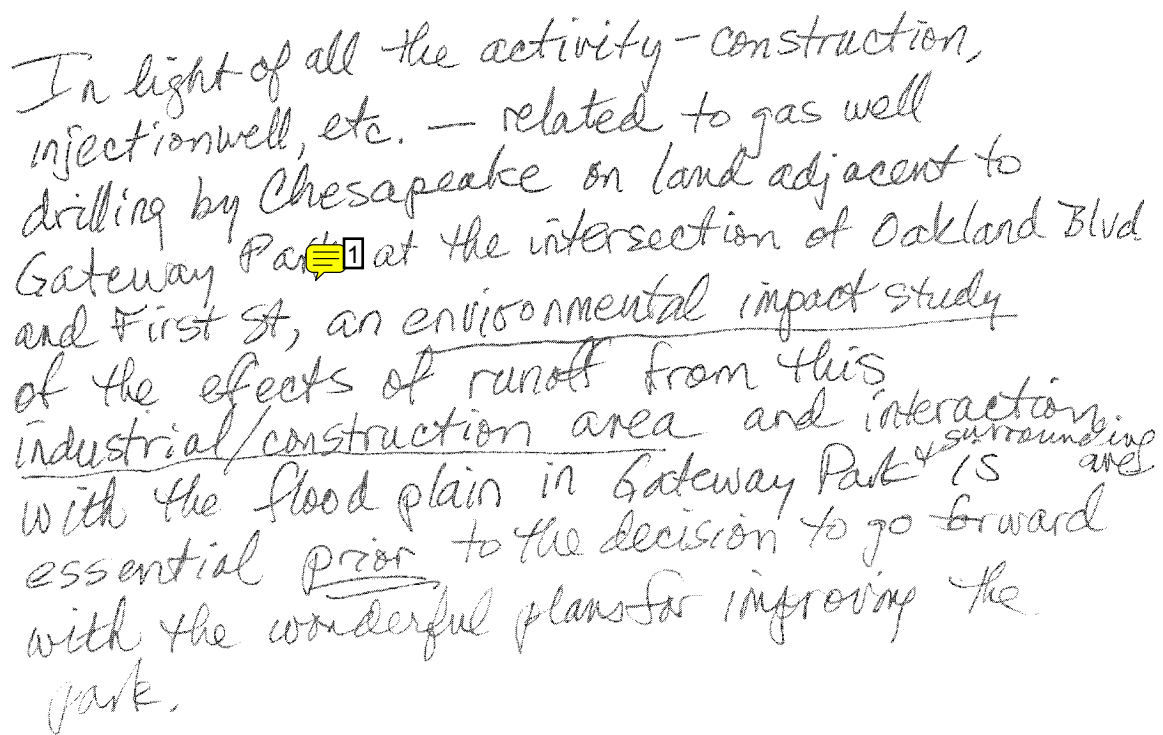 In light of all the activity - construction,
injection well, etc. — related to gas well
drilling by Chesapeake on land adjacent to
Gateway Park 1 at the intersection of Oakland Blvd
and First St, an environmental impact study
of the effects of runoff from this
industrial/construction area and interaction
with the flood plain in Gateway Park + surrounding area is
essential prior to the decision to go forward
with the wonderful plans for improving the
park.